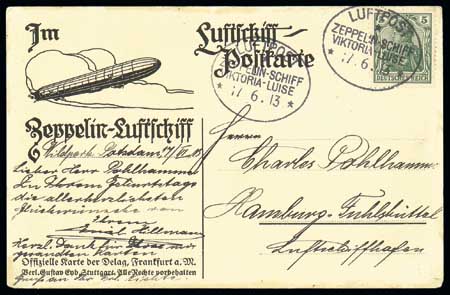 Im Luftschiff-
Postkarte
Zeppelin-Luftschiff
LUFTPOST
ZEPPELIN-SCHIFF
VIKTORIA-LUISE
* 17.6.13 *
LUFTPOST
ZEPPELIN-SCHIFF
VIKTORIA-LUISE
* 17.6.
5
DEUTSCHES REICH
Wildpark Potsdam 17/VI.13
Lieber Herr Pohlhammer
Zu Ihrem Geburtstage
die allerherzlichsten
Glückwünsche von
Ihrem
Emil Hillmann
Herzl. Dank für
gesandten Karten
Offizielle Karte der Delag, Frankfurt a. M.
Verl. Gustav Eyb, Stuttgart. Alle Rechte vorbehalten
Herrn
Charles Pohlhammer
Hamburg-Fuhlsbüttel
Luftschiffhafen